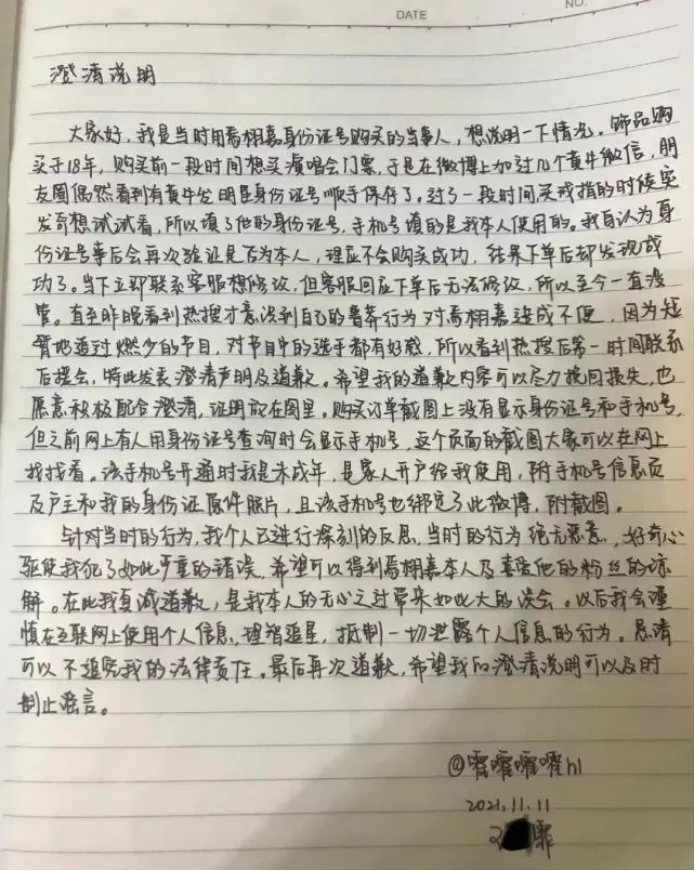 DATE
NO.
澄清说明
大家好，我是当时用焉栩嘉身份证号购买的当事人，想说明一下情况。饰品购
买于18年，购买前一段时间想买演唱会门票，于是在微博上加过几个黄牛微信，朋
友圈偶然看到有黄牛发明星身份证号顺手保存了。过了一段时间买戒指的时候突
发奇想试试看，所以填了他的身份证号，手机号填的是我本人使用的。我自认为身
份证号事后会再次验证是否为本人，理应不会购买成功，结果下单后却发现成
功了。当下立即联系客服想修改，但客服回应下单后无法修改，所以至今一直没
管。直至昨晚看到热搜才意识到自己的鲁莽行为对焉栩嘉造成不便，因为短
暂地追过燃少的节目，对节目中的选手都有好感，所以看到热搜后第一时间联系
后援会，特此发表澄清声明及道歉。希望我的道歉内容可以尽力挽回损失，也
愿意积极配合澄清，证明放在图里。购买订单截图上没有显示身份证号和手机号，
但之前网上有人用身份证号查询时会显示手机号，这个页面的截图大家可以在网上
找找看。该手机号开通时我是未成年，是家人开户给我使用，附手机号信息页
及户主和我的身份证原件照片，且该手机号也绑定了此微博，附截图。
针对当时的行为，我个人已进行深刻的反思，当时的行为绝无恶意，好奇心
驱使我犯了如此严重的错误，希望可以得到焉栩嘉本人及喜爱他的粉丝的谅
解。在此我真诚道歉，是我本人的无心之过带来如此大的误会。以后我会谨
慎在互联网上使用个人信息，理智追星，抵制一切泄露个人信息的行为。恳请
可以不追究我的法律责任。最后再次道歉，希望我的澄清说明可以及时
制止谣言。
2021.11.11